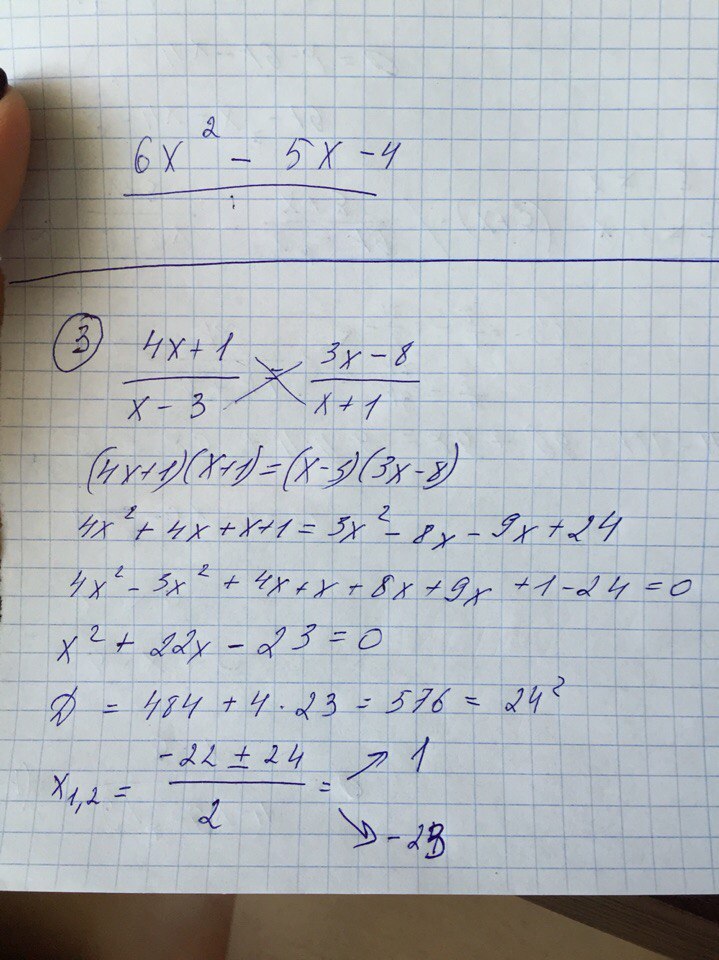 6x² - 5x - 4
③ (4x+1)/(x-3) = (3x-8)/(x+1)
(4x+1)(x+1)=(x-3)(3x-8)
4x²+4x+x+1=3x²-8x-9x+24
4x²-3x²+4x+x+8x+9x+1-24=0
x²+22x-23=0
D = 484+4·23=576=24²
x₁,₂ = (-22±24)/2 = ↗ 1
↘ -23